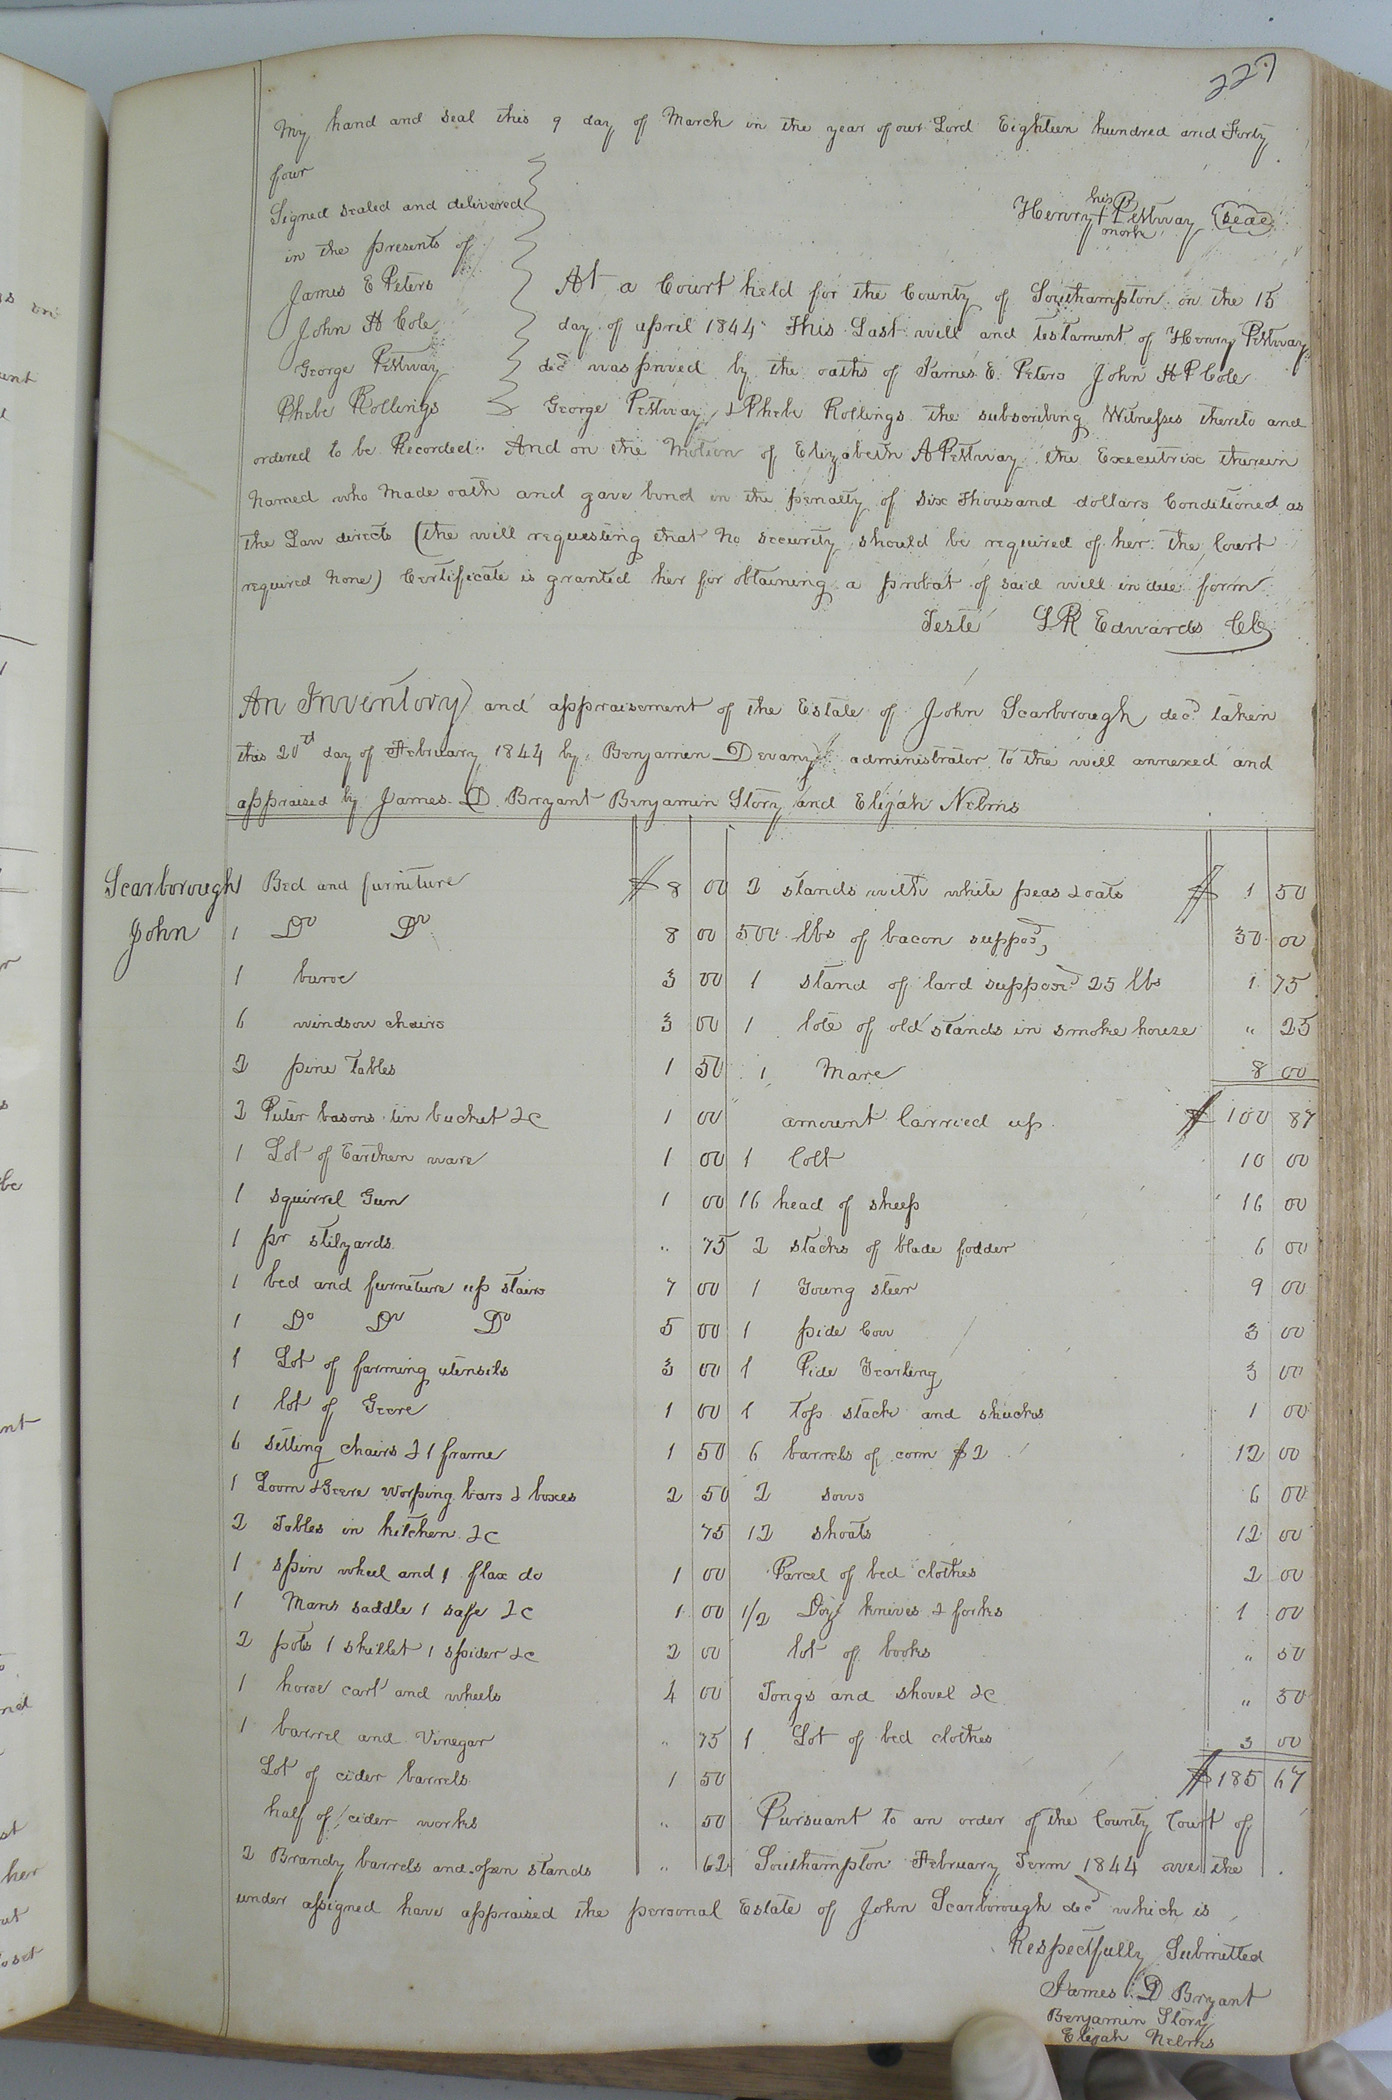 227
My hand and seal this 9 day of March in the year of our Lord Eighteen hundred and Forty
four
Signed sealed and delivered
in the presents of
James E Peters
John H Cole
George Pettway
Phebe Rollings
his
Henry + Pettway seal
mark
At a Court held for the County of Southampton on the 15
day of April 1844 This Last will and testament of Henry Pettway
decd was proved by the oaths of James E. Peters John H P Cole
George Pettway & Phebe Rollings the subscribing Witnesses thereto and
ordered to be Recorded. And on the Motion of Elizabeth A Pettway the Executrix therein
Named who Made oath and gave bond in the penalty of Six Thousand dollars Conditioned as
the Law directs (the will requesting that No security should be required of her the Court
required None) Certificate is granted her for obtaining a probat of said will in due form
Teste L R Edwards CC
An Inventory and appraisement of the Estate of John Scarborough decd taken
this 20td day of February 1844 by Benjamin Devany administrator to the will annexed and
appraised by James D. Bryant Benjamin Story and Elijah Nelms
Scarborough
John
1 Bed and furniture $ 8 00
1 Do Do 8 00
1 buroe 3 00
6 windsow chairs 3 00
2 pine Tables 1 50
2 Puter basons tin bucket &c 1 00
1 Lot of Earthen ware 1 00
1 squirrel Gun 1 00
1 pr stilyards " 75
1 bed and furneture up stairs 7 00
1 Do Do Do 5 00
1 Lot of farming utensils 3 00
1 lot of Geere 1 00
6 setting chairs & 1 frame 1 50
1 Loom & Geere worping bars & boxes 2 50
2 Tables in kitchen &c 75
1 spin wheel and 1 flax do 1 00
1 Mans saddle 1 safe &c 1 00
2 pots 1 skillet 1 spider &c 2 00
1 horse cart and wheels 4 00
1 barrel and Vinegar " 75
Lot of cider barrels 1 50
half of cider works " 50
2 Brandy barrels and open stands " 62
2 stands with white peas & oats $ 1 50
500 lbs of bacon supposd 30 00
1 stand of lard supposd 25 lbs 1 75
1 lote of old stands in smoke house " 25
1 Mare 8 00
amount Carried up $ 100 87
1 Colt 10 00
16 head of sheep 16 00
2 stacks of blade fodder 6 00
1 Young steer 9 00
1 pide Cow 3 00
1 Pide Yearling 3 00
1 Top stack and shucks 1 00
6 barrels of corn $2 12 00
2 sows 6 00
12 shoats 12 00
Parcel of bed clothes 2 00
1/2 Doz knives & forks 1 00
lot of books " 50
Tongs and shovel &c " 50
1 Lot of bed clothes 3 00
$ 185 67
Pursuant to an order of the County Court of
Southampton February Term 1844 we the
under assigned have appraised the personal Estate of John Scarborough decd which is
Respectfully Submitted
James D Bryant
Benjamin Story
Elijah Nelms